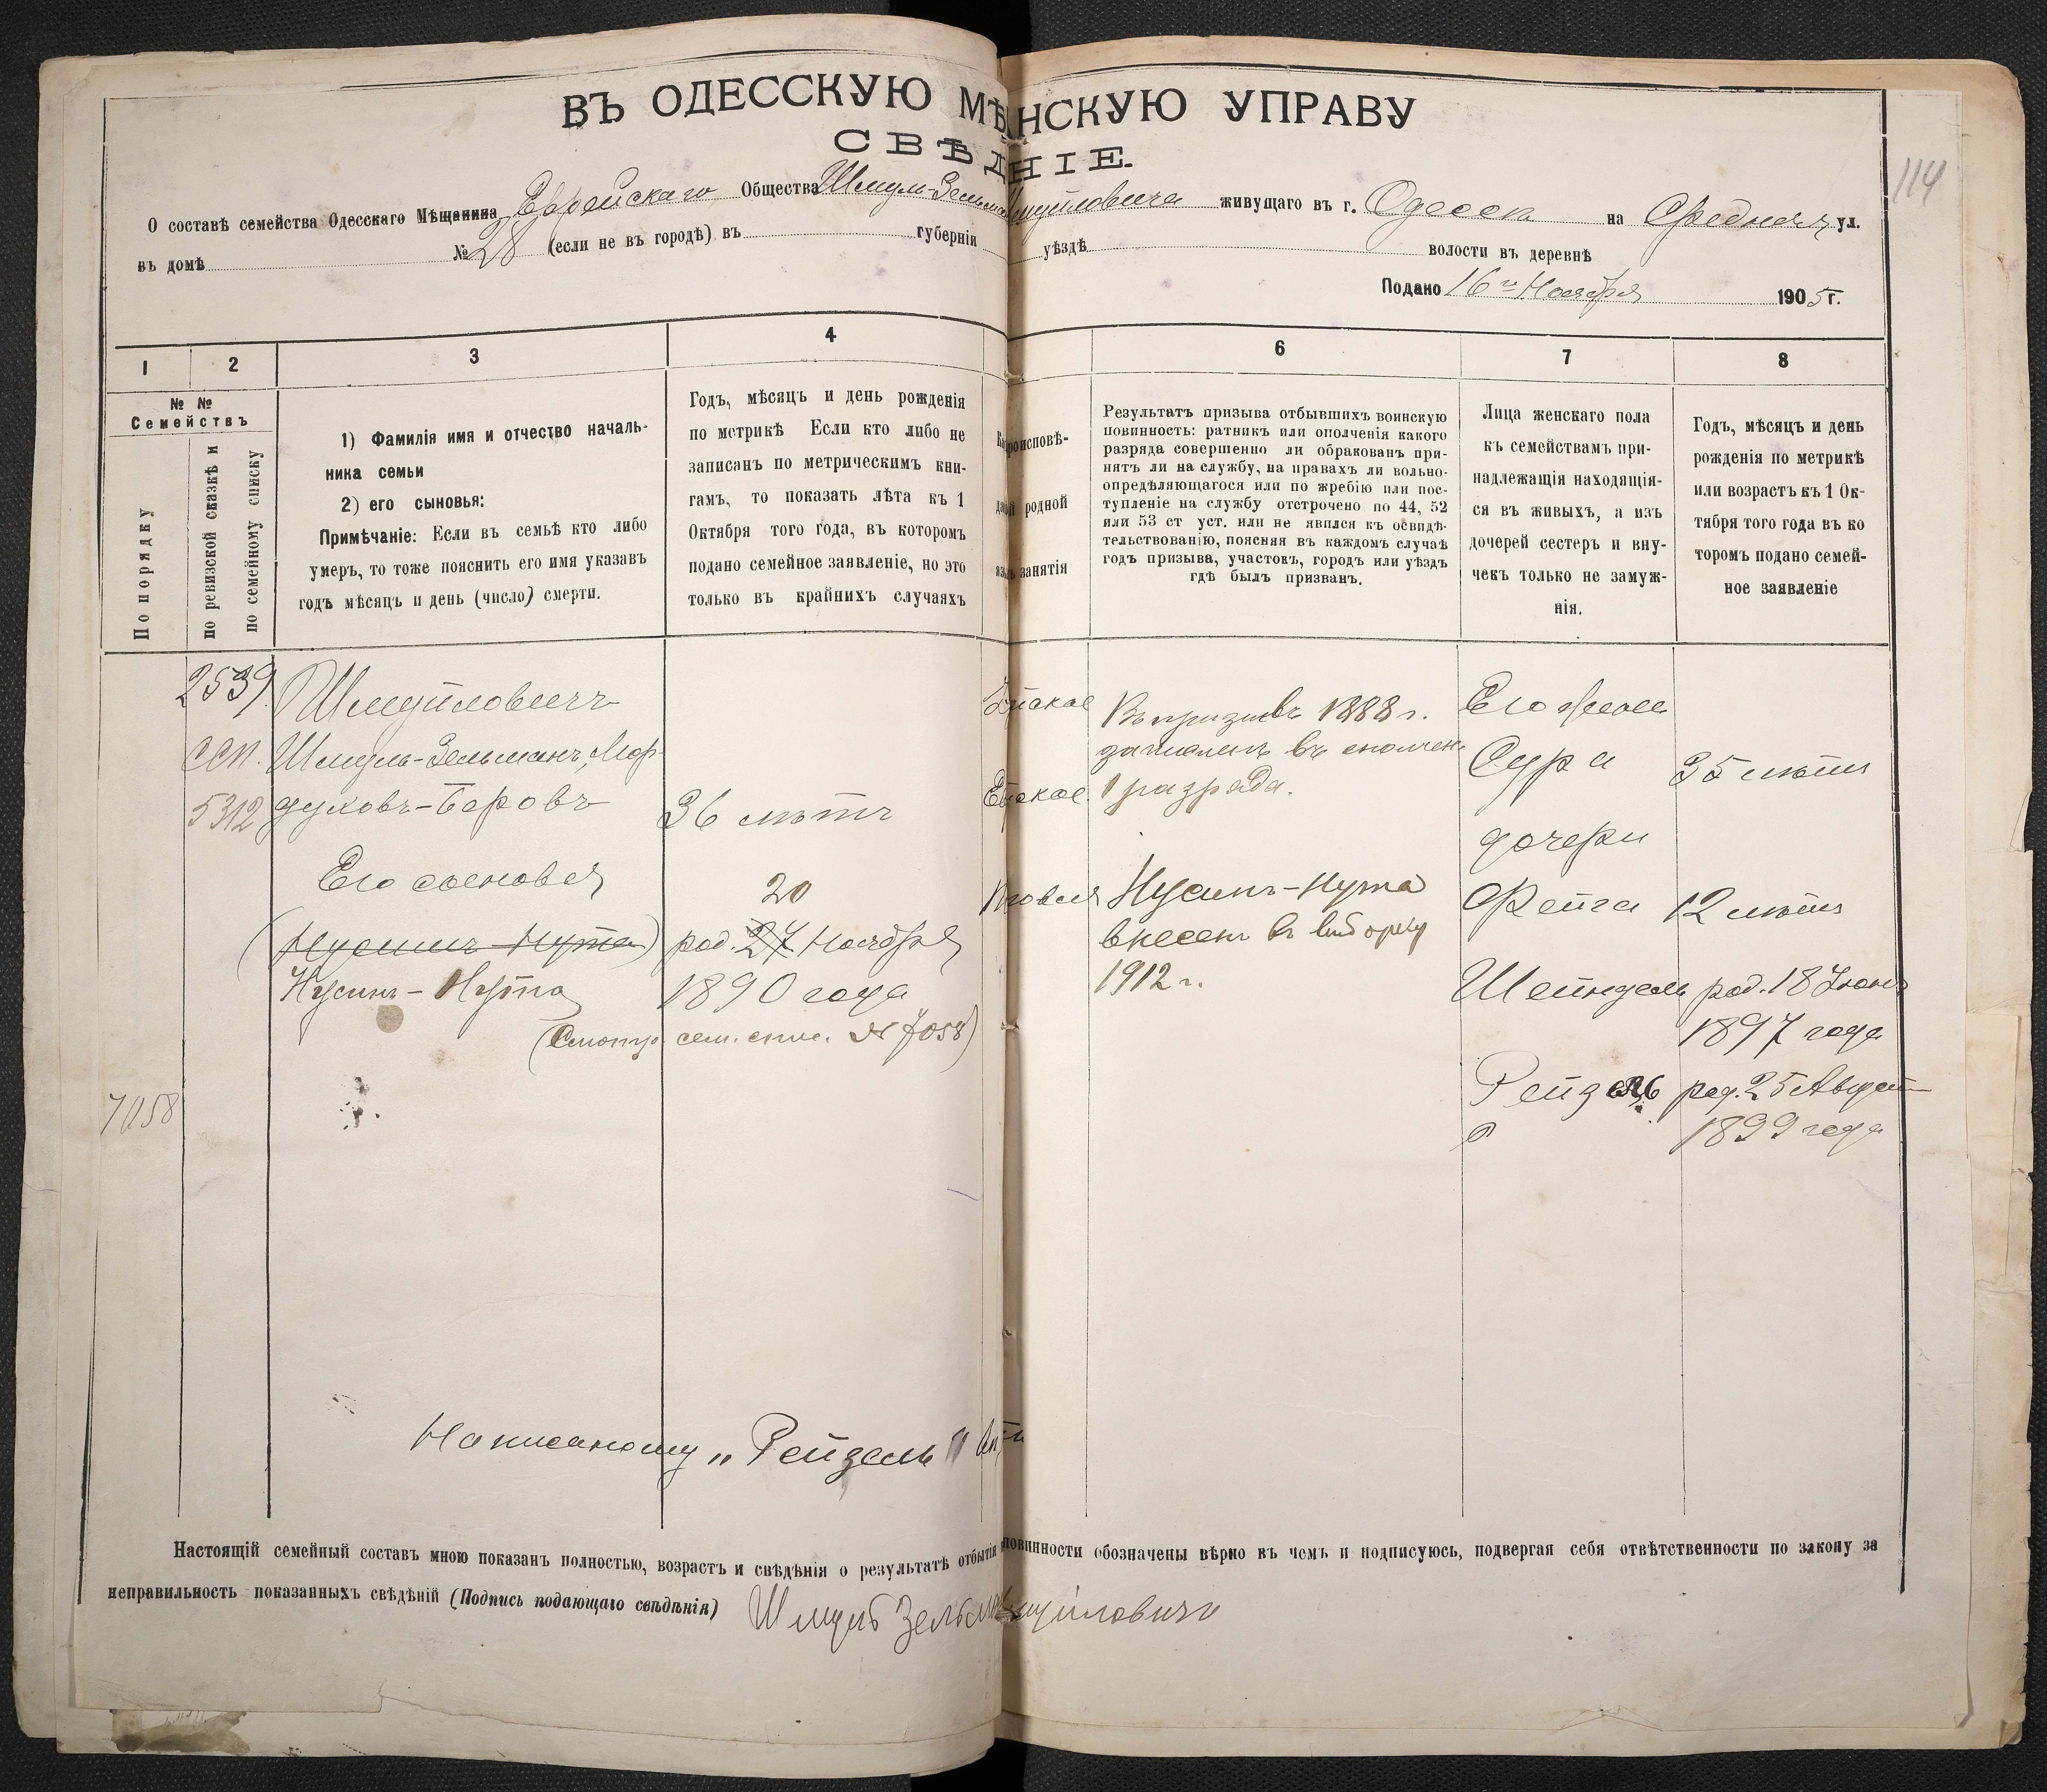 ВЪ ОДЕССКУЮ МѢ НСКУЮ УПРАВУ
СВѢД НІЕ.
114
О составѣ семейства Одесскаго Мѣщанина Еврейскаго Общества Шмуль-Зельма муйловича живущаго въ г. Одессѣ на Средней ул.
въ домѣ № 28 (если не въ городѣ) въ губерніи уѣздѣ волости въ деревнѣ
Подано 16го Ноября 1905 г.
1 2 3 4 6 7 8
№ №
Семействъ
По порядку
по ревизской сказкѣ и
по семейному списку
1) Фамилія имя и отчество началь-
ника семьи
2) его сыновья:
Примѣчаніе: Если въ семьѣ кто либо
умеръ, то тоже пояснить его имя указавъ
годъ мѣсяцъ и день (число) смерти.
Годъ, мѣсяцъ и день рожденія
по метрикѣ Если кто либо не
записанъ по метрическимъ кни-
гамъ, то показать лѣта къ 1
Октября того года, въ которомъ
подано семейное заявленіе, но это
только въ крайнихъ случаяхъ
роисповѣ-
родной
занятія
Результатъ призыва отбывшихъ воинскую
повинность: ратникъ или ополченія какого
разряда совершенно ли обракованъ при-
нятъ ли на службу, на правахъ ли вольно-
опредѣляющагося или по жребію или пос-
тупленіе на службу отстрочено по 44, 52
или 53 ст уст. или не явился къ освидѣ-
тельствованію, поясняя въ каждомъ случаѣ
годъ призыва, участокъ, городъ или уѣздъ
гдѣ былъ призванъ.
Лица женскаго пола
къ семействамъ при-
надлежащія находящія-
ся въ живыхъ, а изъ
дочерей сестеръ и вну-
чекъ только не замуж-
нія.
Годъ, мѣсяцъ и день
рожденія по метрикѣ
или возрастъ къ 1 Ок-
тября того года въ ко
торомъ подано семей-
ное заявленіе
2539
5312
7058
Шмуйловичъ
Шмуль-Зельманъ, Мор-
духовъ-Беровъ 36 лѣтъ
Его сыновья
20
(Нусинъ-Нута) род. 27 Ноября
Нусинъ-Нута 1890 года
(Смотр. сем. спис. № 7058)
Въ призывъ 1888 г.
зачисленъ въ ополчен.
1 разряда.
Нусинъ-Нута
внесенъ въ
1912 г.
Его жена
Сура 35 лѣтъ
дочери
Фейга 12 лѣтъ
Шейндель род. 18 Іюня
1897 года
Рейзель род. 25 Августа
1899 года
Написаному „Рейзель"
Настоящій семейный составъ мною показанъ полностью, возрастъ и свѣдѣнія о результатѣ отбытія повинности обозначены вѣрно въ чемъ и подписуюсь, подвергая себя отвѣтственности по закону за
неправильность показанныхъ свѣдѣній (Подпись подающаго свѣдѣнія) Шмуль Зельма муйловичъ